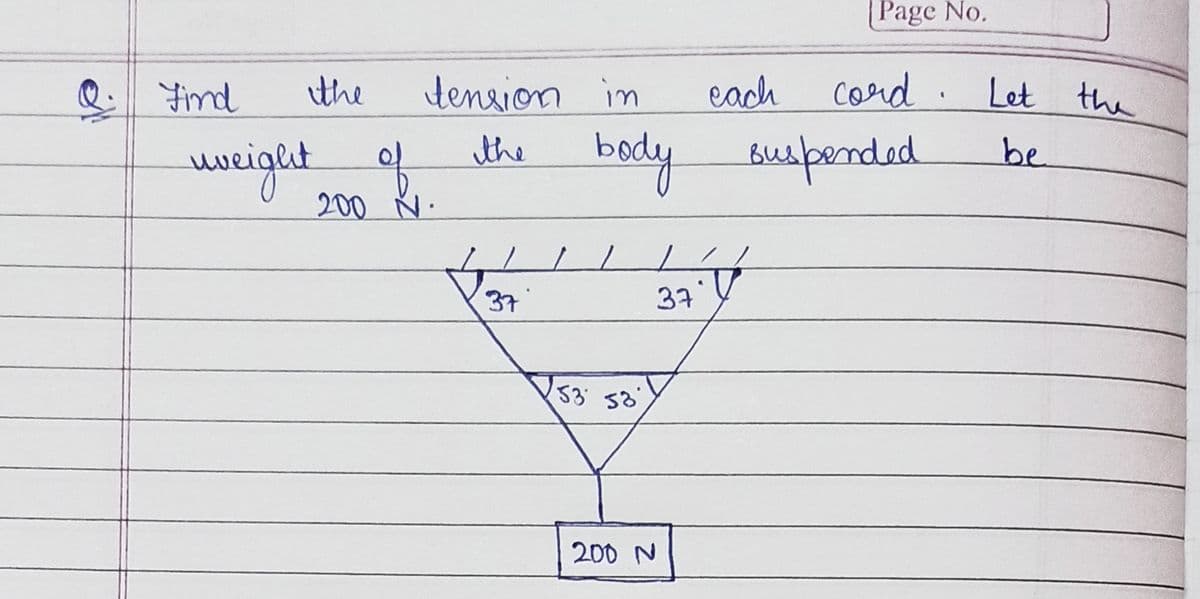 Page No.
Q. Find the tension in each cord. Let the
weight of the body suspended be
200 N.
37° 37°
53° 53°
200 N